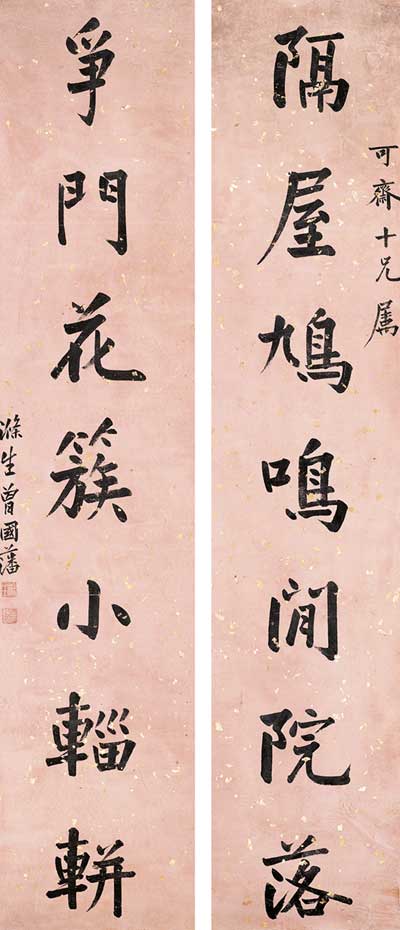 可齋十兄屬
隔屋鳩鳴閒院落
爭門花簇小輜軿
滌生曾國藩